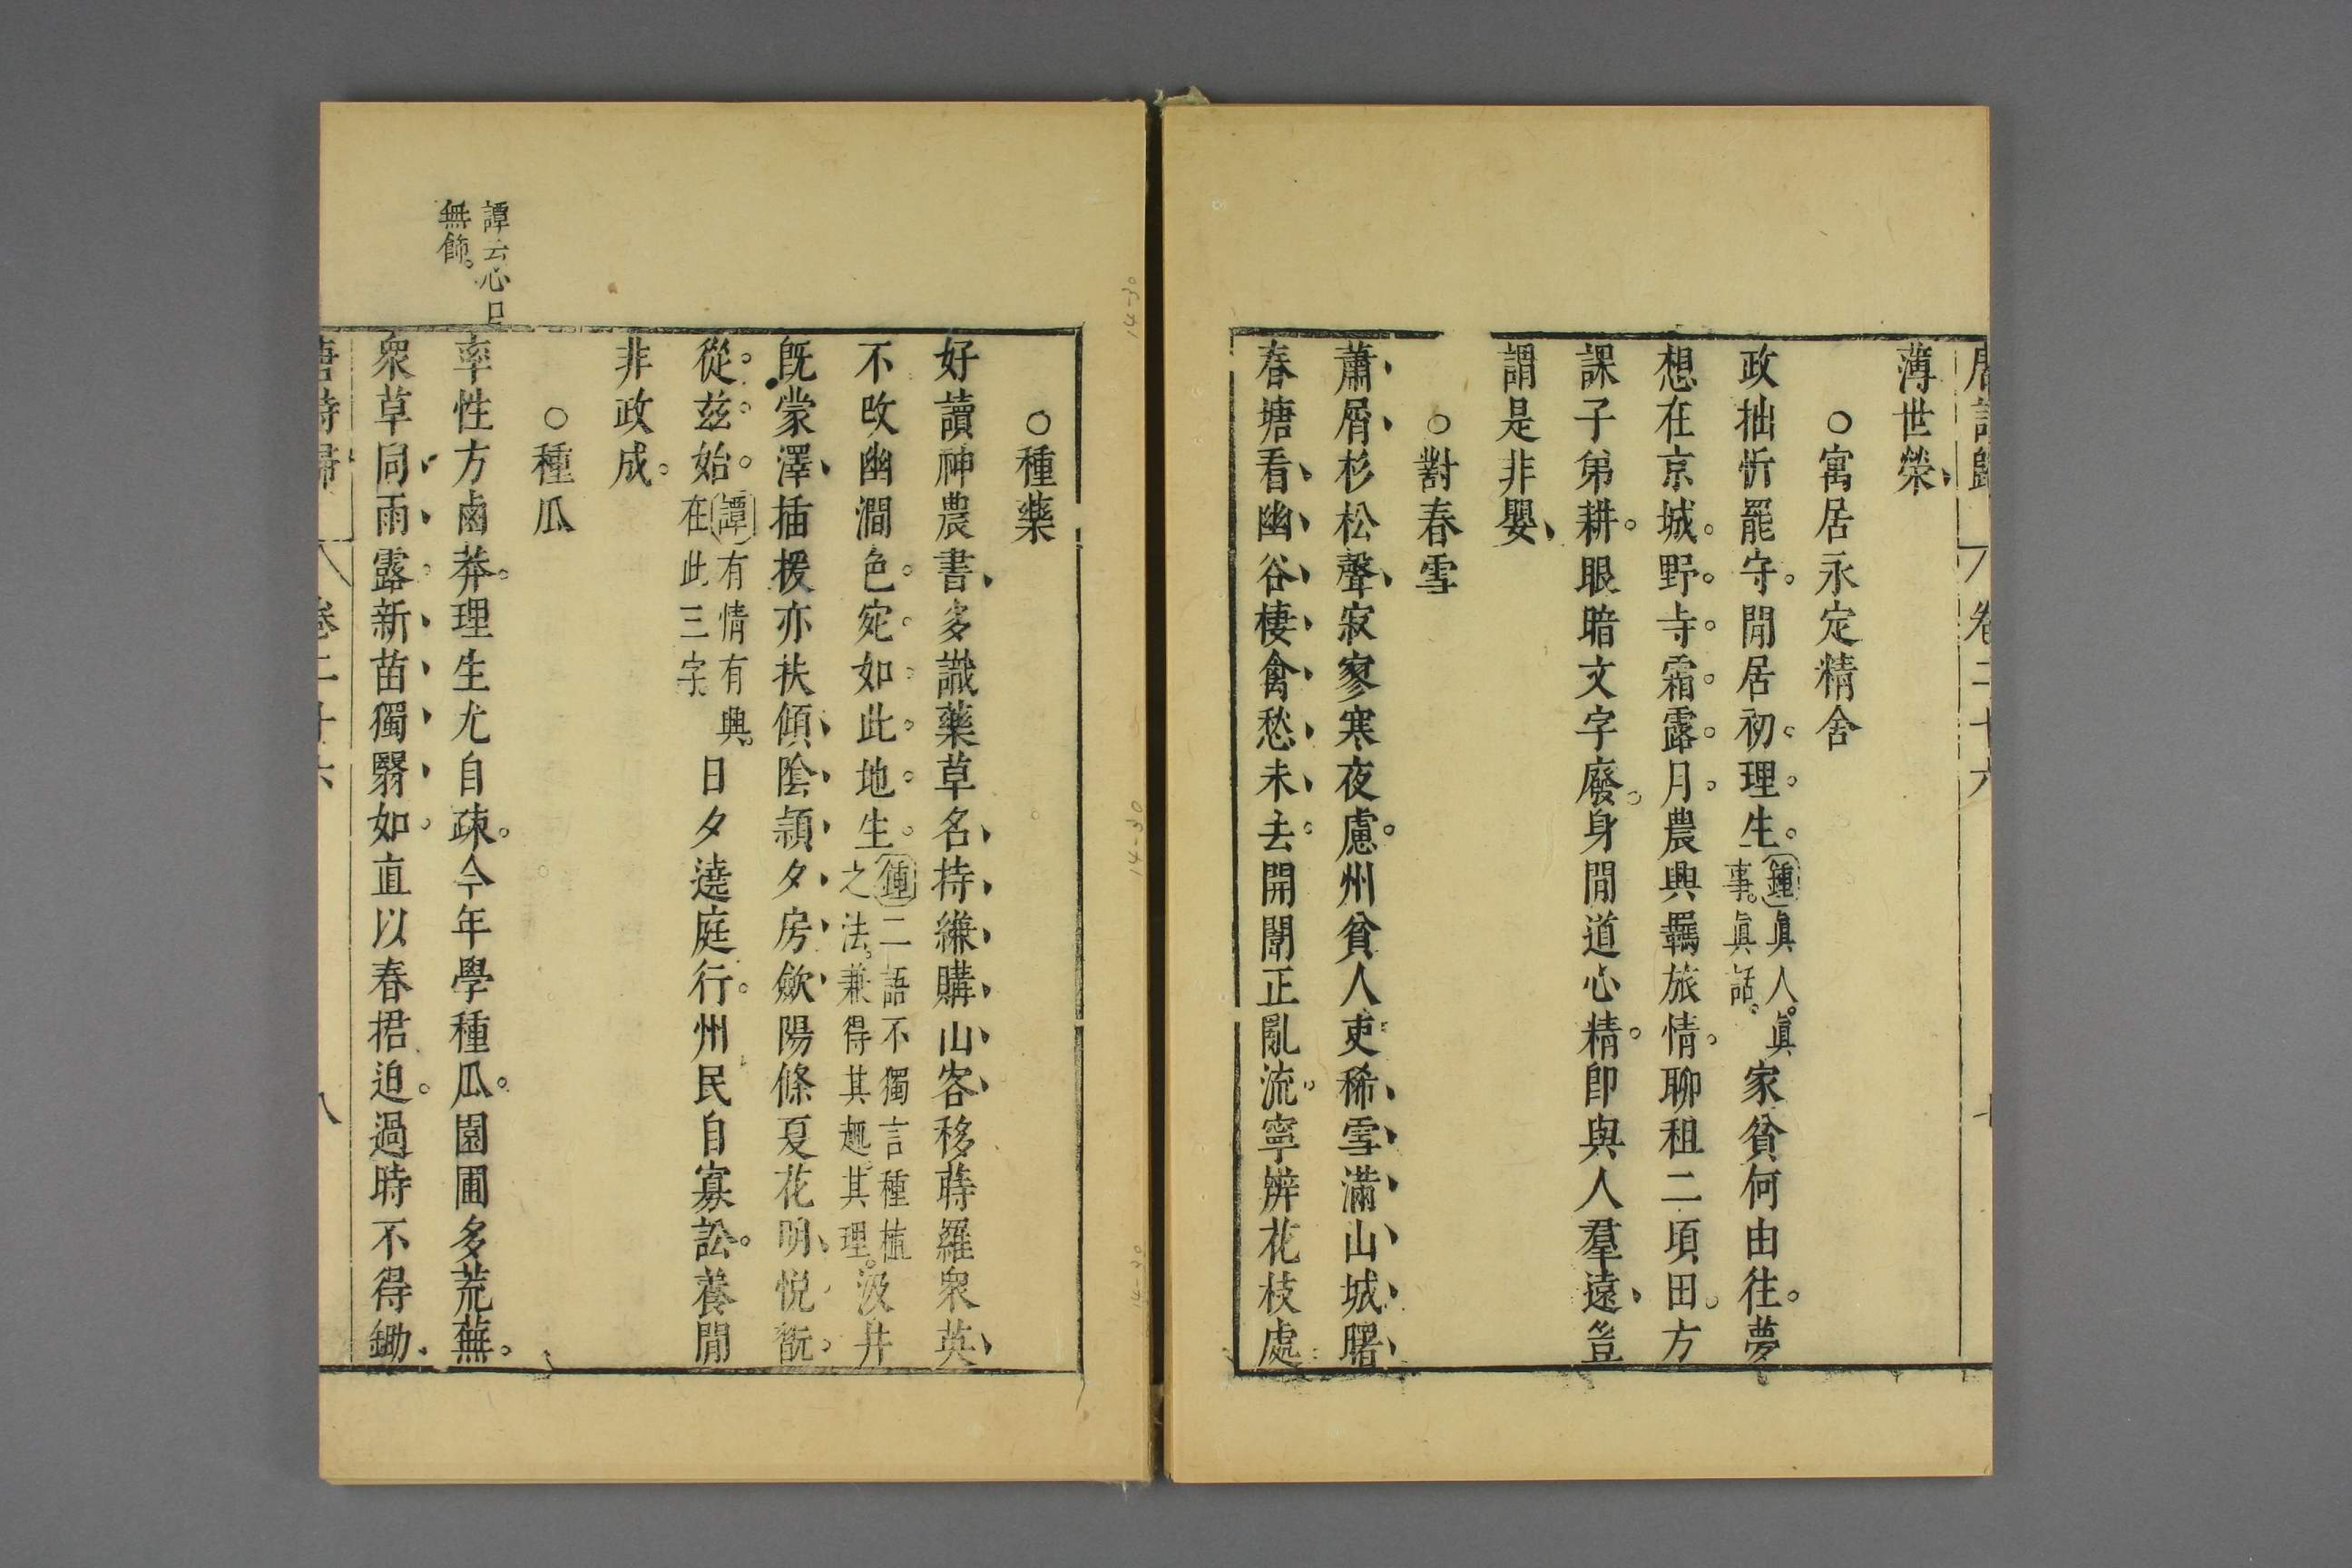 唐詩歸 卷二十六 七
薄世榮
○寓居永定精舍
政拙忻罷守閒居初理生鍾眞人眞事眞話家貧何由往夢
想在京城野寺霜露月農興羈旅情聊租二頃田方
課子弟耕眼暗文字廢身閒道心精卽與人羣遠豈
謂是非嬰
○對春雪
蕭屑杉松聲寂寥寒夜慮州貧人吏稀雪滿山城曙
春塘看幽谷棲禽愁未去開闈正亂流寧辨花枝處
○種藥
好讀神農書多識藥草名持縑購山客移蒔羅衆英
不改幽澗色宛如此地生鍾二語不獨言種植之法兼得其趣其理汲井
旣蒙澤插援亦扶傾陰潁夕房歛陽條夏花明悅翫
從茲始譚有情有興在此三字日夕遶庭行州民自寡訟養閒
非政成
○種瓜
譚云心口
無飾
率性方鹵莽理生尤自疎今年學種瓜園圃多荒蕪
衆草同雨露新苗獨翳如直以春捃迫過時不得鋤
唐詩歸 卷二十六 八